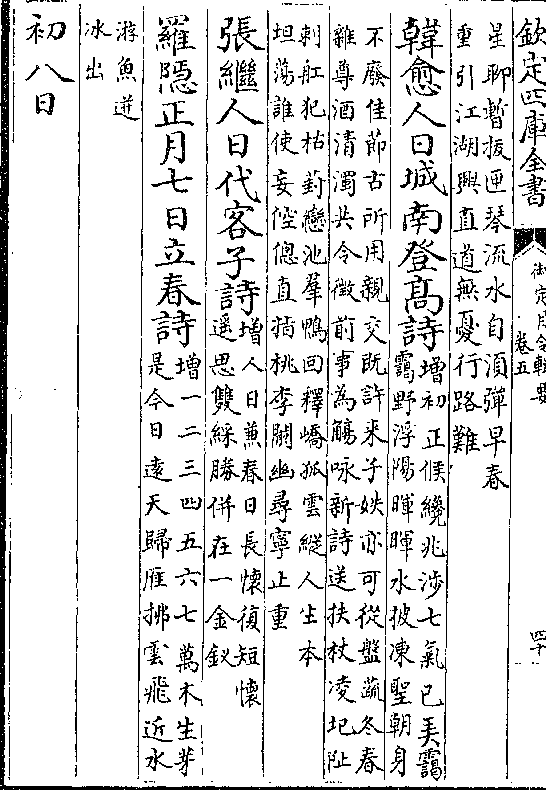 欽定四庫全書
御定月令輯要
卷五
四十
星聊暫拔匣琴流水自須彈早春
重引江湖興直道無憂行路難
韓愈人日城南登高詩
增初正候纔兆涉七氣已弄靄
靄野浮陽暉暉水披凍聖朝身
不廢佳節古所用親交既許来子姪亦可從盤蔬冬春
雜尊酒清濁共令徴前事為觴咏新詩送扶杖凌圯阯
刺舡犯枯葑戀池羣鴨回釋嶠孤雲縱人生本
坦蕩誰使妄倥偬直指桃李闌幽尋寧止重
張繼人日代客子詩
增人日兼春日長懷復短懷
遥思雙綵勝併在一金釵
羅隱正月七日立春詩
增一二三四五六七萬木生芽
是今日遠天歸雁拂雲飛近水
游魚迸
冰出
初八日